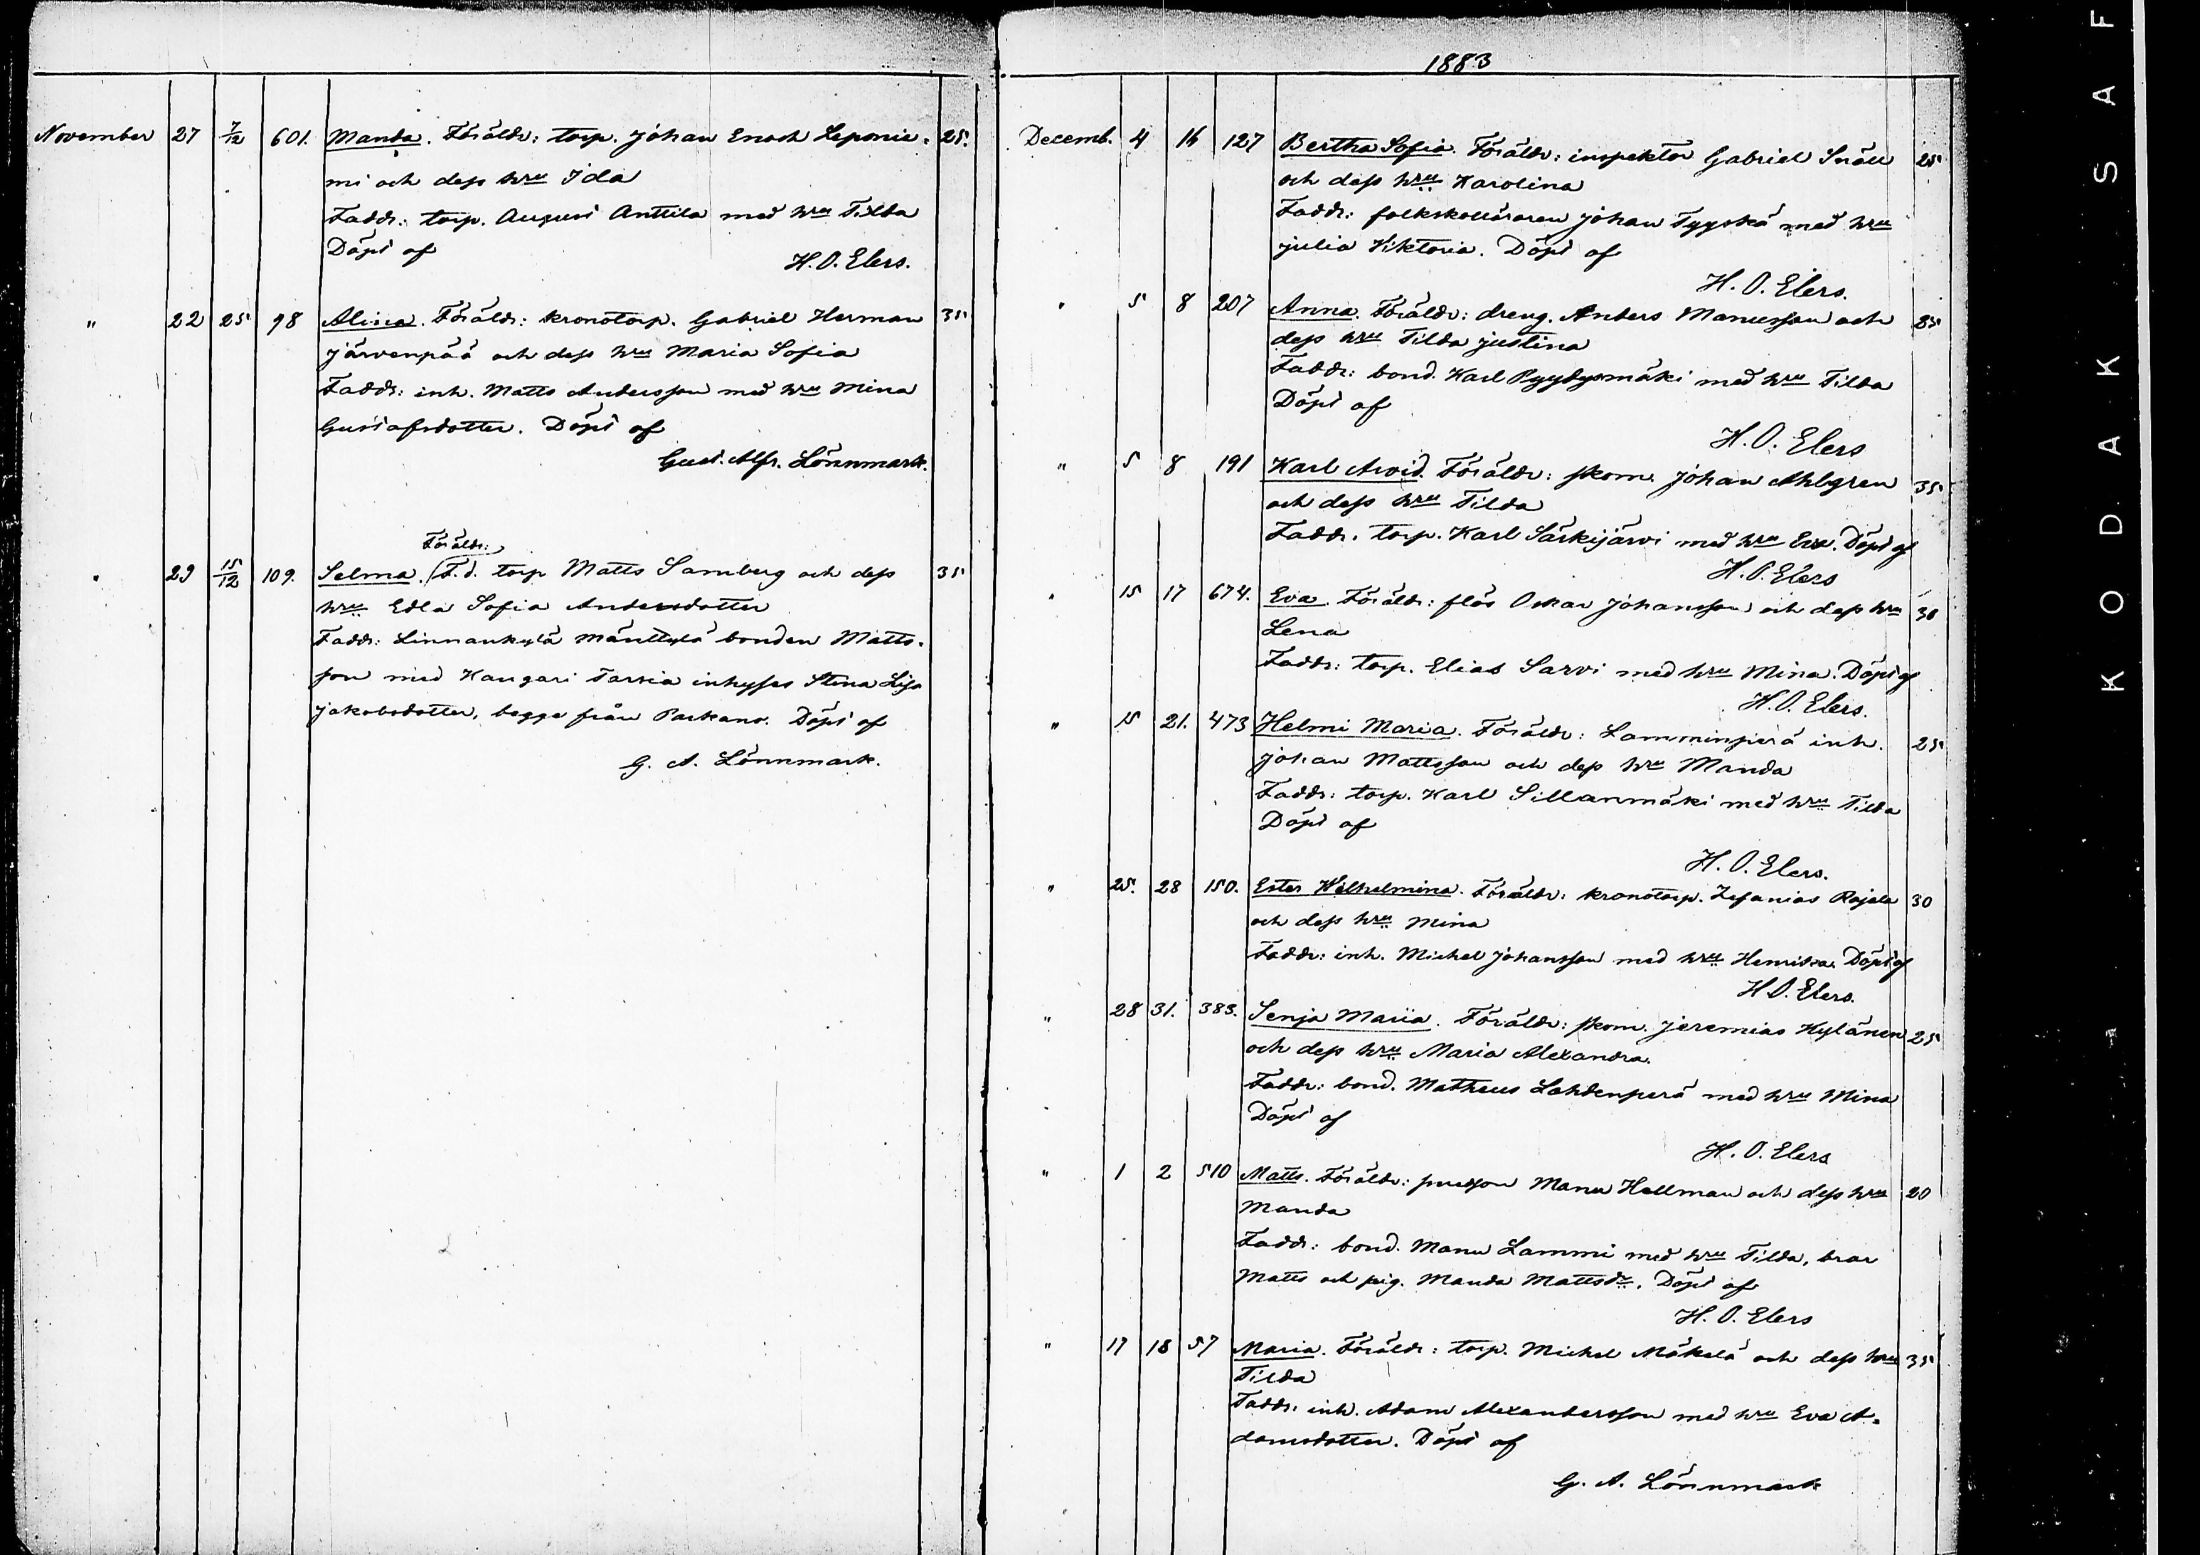 November 27 7/12 601. Manda. Föräldr: torp. Johan Enoch Leponie- 25.
mi och dess hru Ida
Faddr: torp. August Anttila med hru Tilda
Döpt af
H. O. Elers.
" 22 25 98 Alina. Föräldr: kronotorp. Gabriel Herman 35
Järvenpää och dess hru Maria Sofia
Faddr: inh. Matts Andersson med hru Mina
Gustafsdotter. Döpt af
Gust. Alfr. Lönnmark.
Föräldr:
" 29 15/12 109. Selma. torp Matts Samberg och dess 35
hru Edla Sofia Andersdotter
Faddr: Linnankylä Mänttylä bonden Matts-
son med Kangari Tarvia inhyses Stina Lisa
Jakobsdotter, begge från Parkano. Döpt af
G. A. Lönnmark.
1883
Decemb. 4 16 127 Bertha Sofia. Föräldr: inspektor Gabriel Snäll 25
och dess hru Karolina
Faddr: folkskolläraren Johan Tyyskä med hru
Julia Viktoria. Döpt af
H. O. Elers.
" 5 8 207 Anna. Föräldr: dreng. Anders Manusson och 25
dess hru Tilda Justina
Faddr: bond. Karl Pyydysmäki med hru Tilda
Döpt af
H. O. Elers
" 5 8 191 Karl Arvid. Föräldr: skom. Johan Ahlgren 35
och dess hru Tilda
Faddr. torp. Karl Särkijärvi med hru Eva. Döpt af
H. O. Elers
" 15 17 674. Eva. Föräldr: Oskar Johansson och dess hru 30
Lena
Faddr: torp. Elias Sarvi med hru Mina. Döpt af
H. O. Elers.
" 15 21. 473 Helmi Maria. Föräldr: Lamminperä inh. 25
Johan Mattsson och dess hru Manda
Faddr: torp. Karl Sillanmäki med hru Tilda
Döpt af
H. O. Elers.
" 25. 28 150. Ester Wilhelmina. Föräldr: kronotorp. Zefanias Rajala 30
och dess hru Mina
Faddr: inh. Michel Johansson med hru Henrika. Döpt af
H. O. Elers.
" 28 31. 383. Senja Maria. Föräldr: skom. Jeremias Kylänen 25
och dess hru Maria Alexandra.
Faddr: bond. Matheus Lahdenperä med hru Mina
Döpt af
H. O. Elers
" 1 2 510 Matts. Föräldr: Manu Hellman och dess hru 20
Manda
Faddr: bond. Manu Lammi med hru Tilda,
Matts och pig. Manda Mattsdr. Döpt af
H. O. Elers
" 17 18 57 Maria. Föräldr: torp. Michel Mäkelä och dess hru 35
Tilda
Faddr. inh. Adam Alexandersson med hru Eva A-
damsdotter. Döpt af
G. A. Lönnmark
KODAK SAF